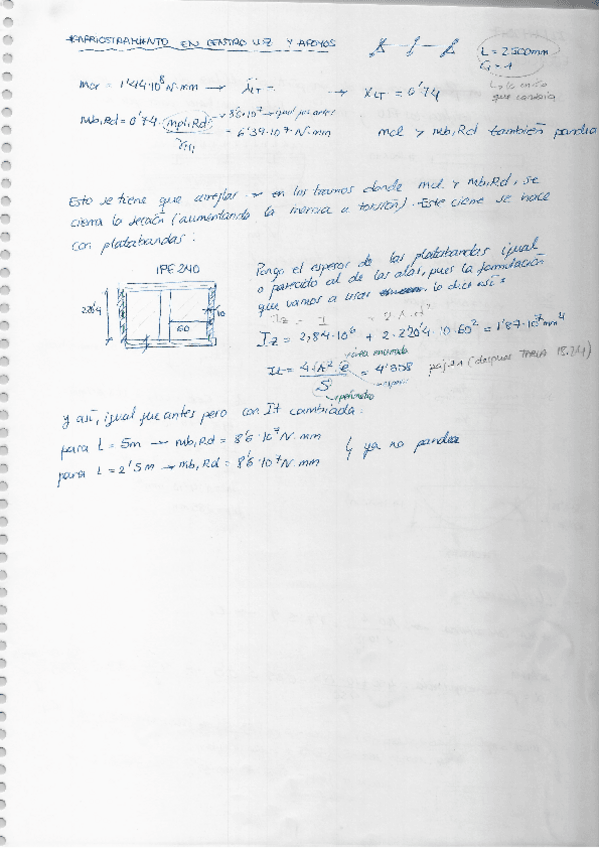 ARRIOSTRAMIENTO EN CENTRO LUZ Y APOYOS
L = 2500mm
C1 = 1
L → único que cambia
Mcr = 1'44·10⁸ N·mm → λLT → XLT = 0'74
Mb,Rd = 0'74 · Mpl,Rd → 8'6·10⁷ → igual que antes
γM1
= 6'39·10⁷ N·mm
Med > Mb,Rd también pandea
Esto se tiene que arreglar → en los tramos donde Med > Mb,Rd, se
cierra la sección (aumentando la inercia a torsión). Este cierre se hace
con platabandas:
IPE 240
220'4
60
10
Pongo el espesor de las platabandas igual
o parecido al de las alas, pues la formulación
que vamos a usar lo dice así:
Iz = I + 2·A·d²
Iz = 2,84·10⁶ + 2·220'4·10·60² = 1'87·10⁷ mm⁴
It = 4·A²·e / S = 4'358
área encerrada
espesor
perímetro
pág. (después TABLA 18.21)
y así, igual que antes pero con It cambiada:
para L = 5m → Mb,Rd = 8'6·10⁷ N·mm
para L = 2'5m → Mb,Rd = 8'6·10⁷ N·mm
ya no pandea